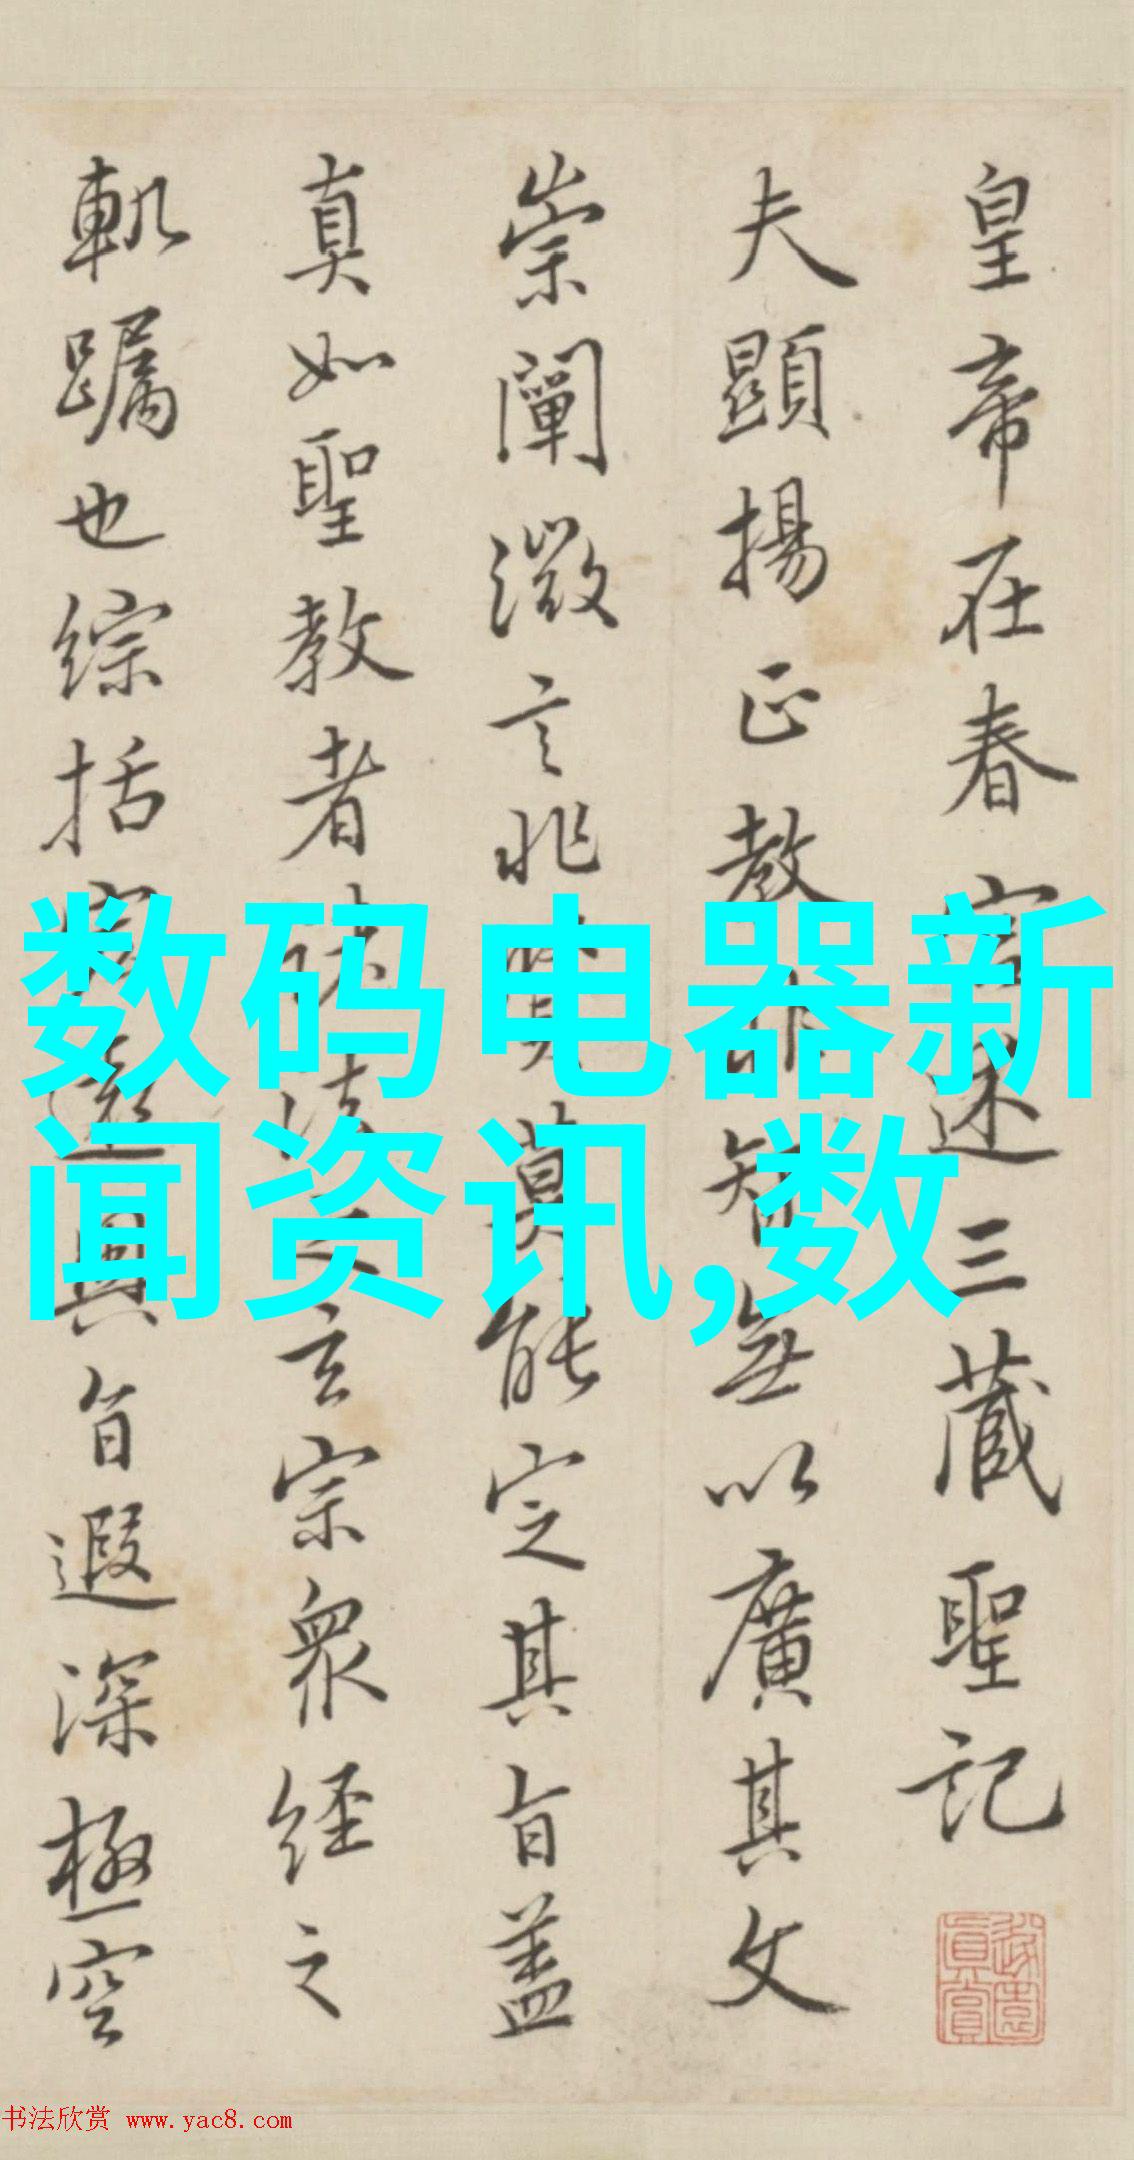 皇帝在春宮述三藏聖記
夫顯揚正教非智無以廣其文
崇闡微言非賢莫能定其旨蓋
真如聖教者諸法之玄宗眾經之
軌躅也綜括宏遠奧旨遐深極空
数码电器新
闻资讯,数
书法欣赏 www.yac8.com